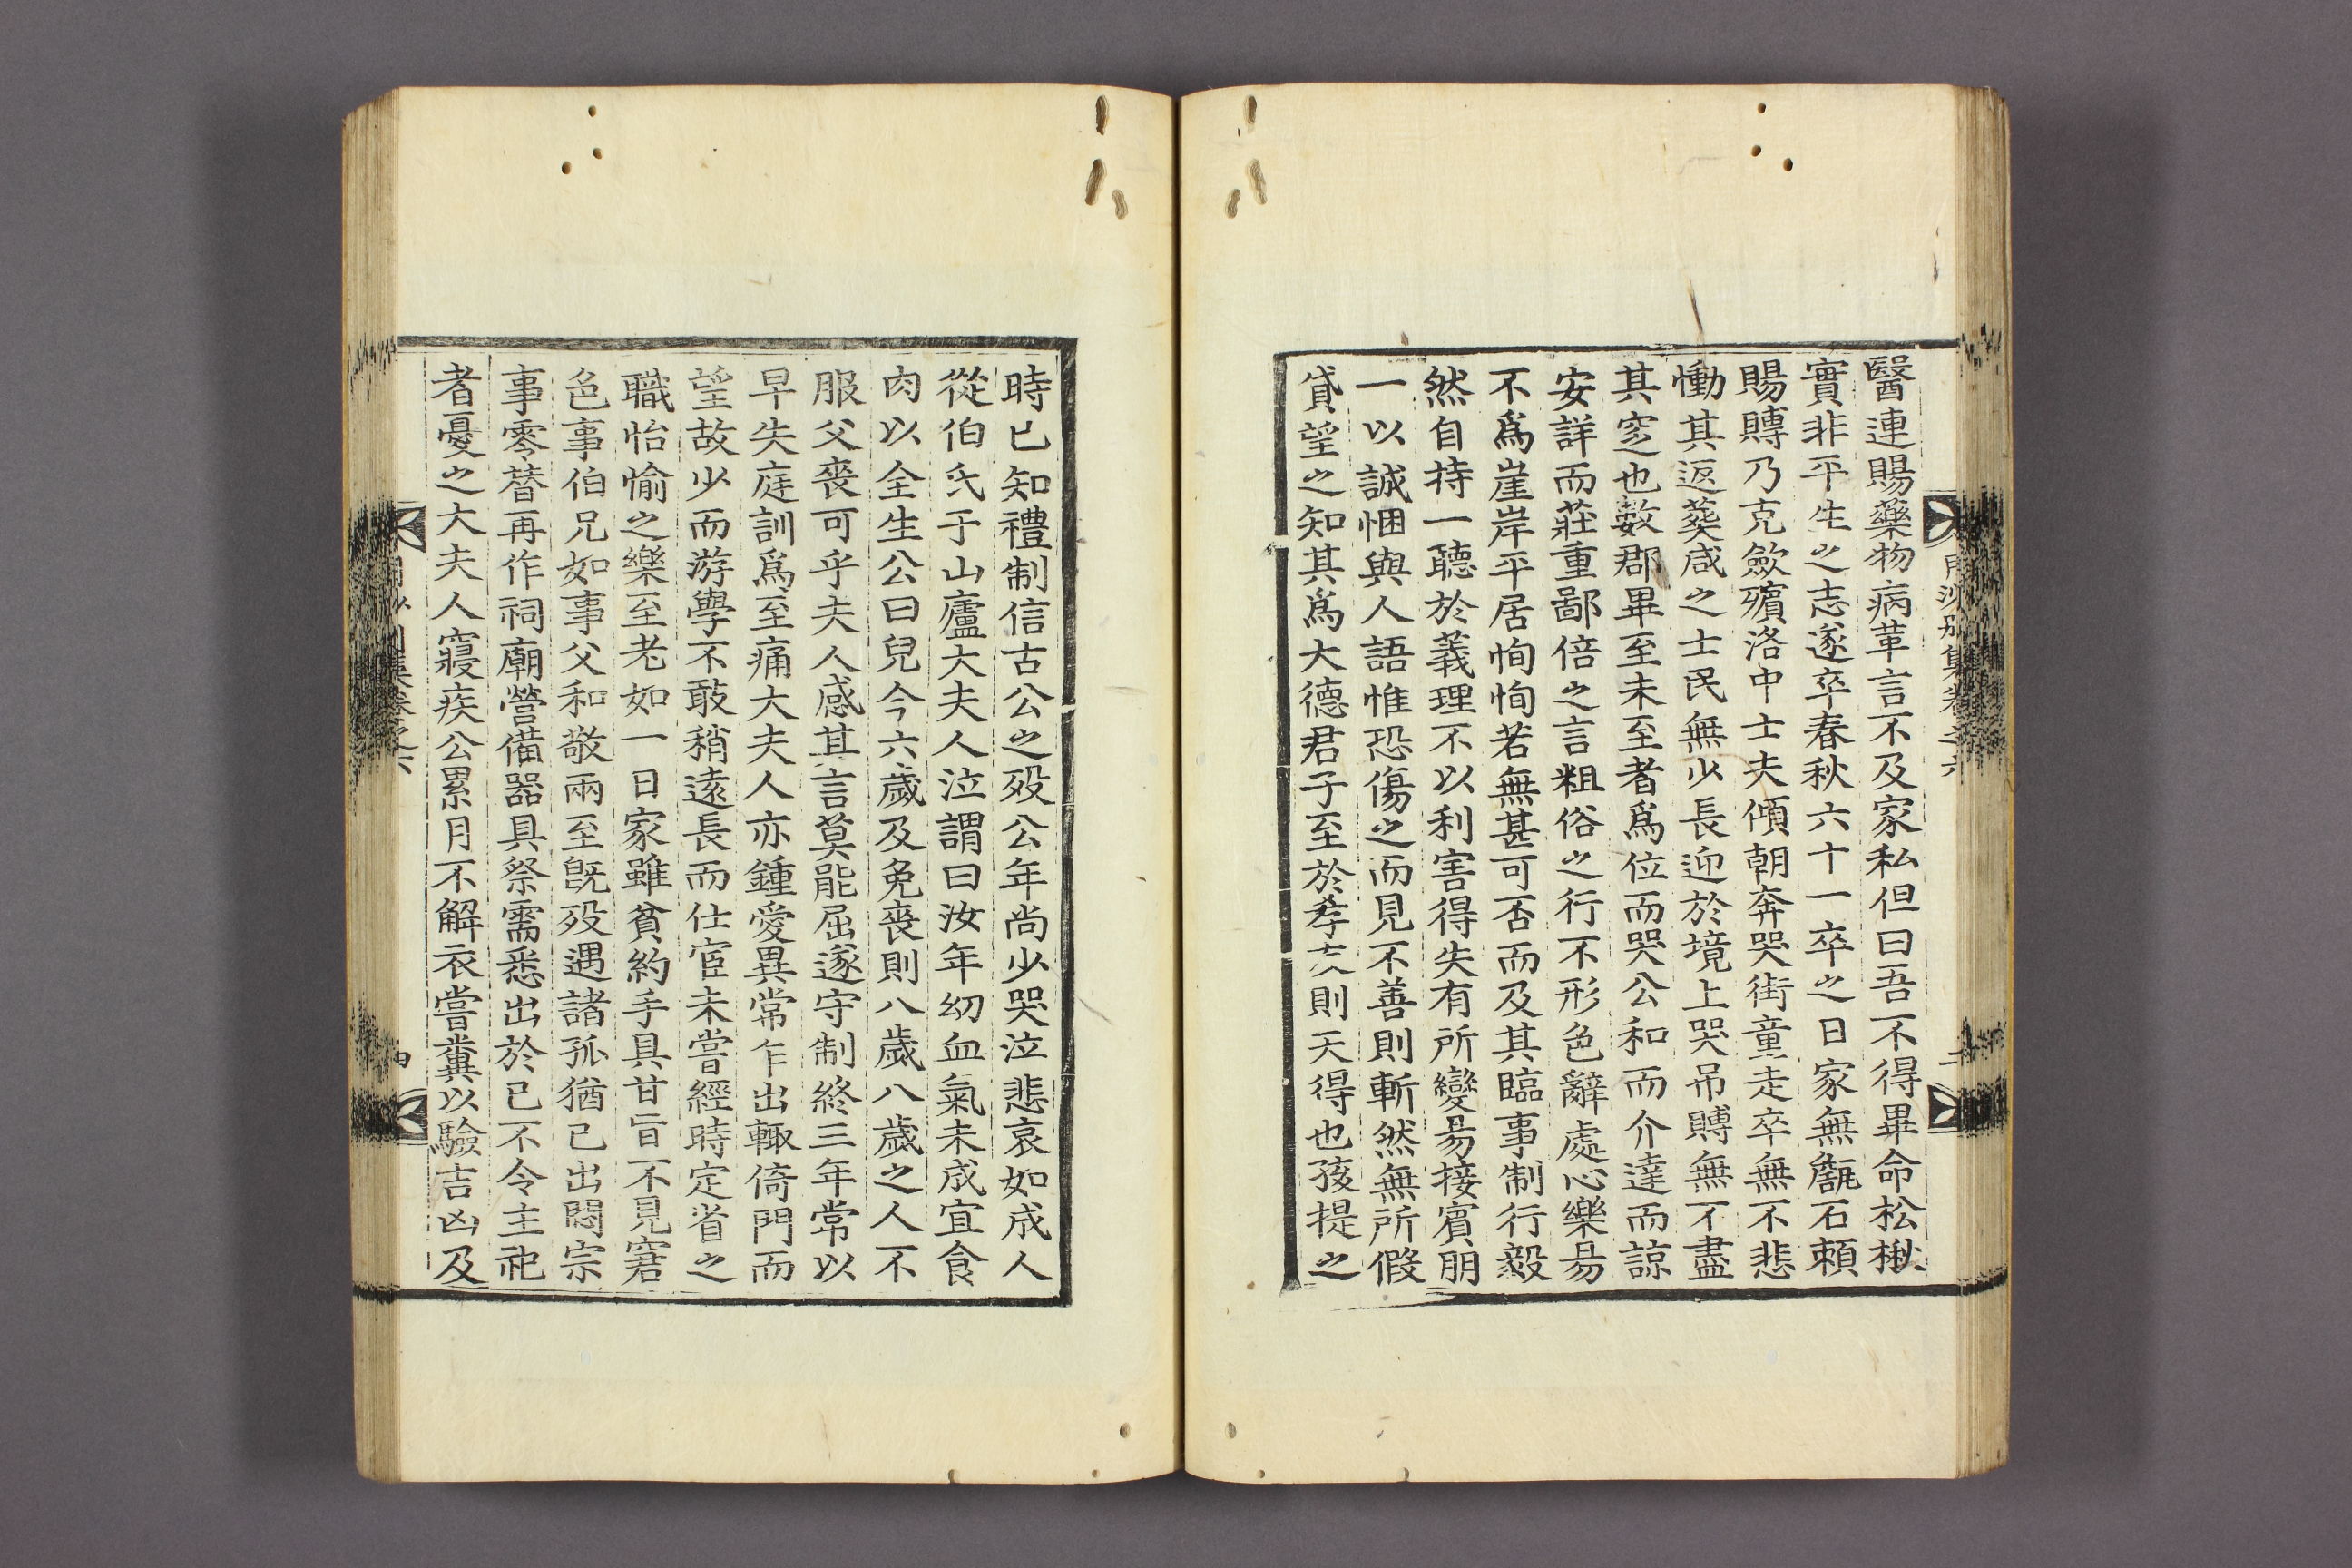 醫連賜藥物病革言不及家私但曰吾不得畢命松楸
實非平生之志遂卒春秋六十一卒之日家無甔石賴
賜賻乃克斂殯洛中士夫傾朝奔哭街童走卒無不悲
慟其返葬咸之士民無少長迎於境上哭吊賻無不盡
其窆也數郡畢至未至者爲位而哭公和而介達而諒
安詳而莊重鄙倍之言粗俗之行不形色辭處心樂易
不爲崖岸平居恂恂若無甚可否而及其臨事制行毅
然自持一聽於義理不以利害得失有所變易接賓朋
一以誠悃與人語惟恐傷之而見不善則斬然無所假
貸望之知其爲大德君子至於孝友則天得也孩提之
時已知禮制信古公之歿公年尚少哭泣悲哀如成人
從伯氏于山廬大夫人泣謂曰汝年幼血氣未成宜食
肉以全生公曰兒今六歲及免喪則八歲八歲之人不
服父喪可乎夫人感其言莫能屈遂守制終三年常以
早失庭訓爲至痛大夫人亦鍾愛異常乍出輒倚門而
望故少而游學不敢稍遠長而仕宦未嘗經時定省之
職怡愉之樂至老如一日家雖貧約手具甘旨不見窘
色事伯兄如事父和敬兩至旣歿遇諸孤猶己出悶宗
事零替再作祠廟營備器具祭需悉出於己不令主祀
者憂之大夫人寢疾公累月不解衣嘗糞以驗吉凶及